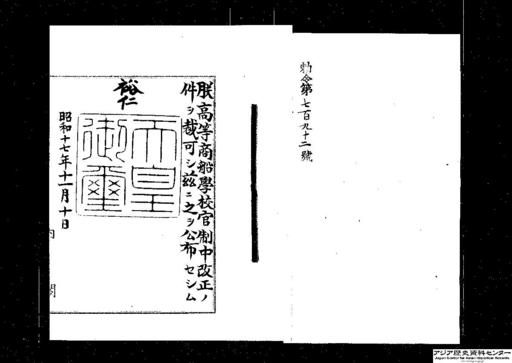 勅令第七百九十二號
朕高等商船學校官制中改正ノ
件ヲ裁可シ茲ニ之ヲ公布セシム
裕仁
天皇
御璽
昭和十七年十一月十日
内閣
アジア歴史資料センター
Japan Center for Asian Historical Records